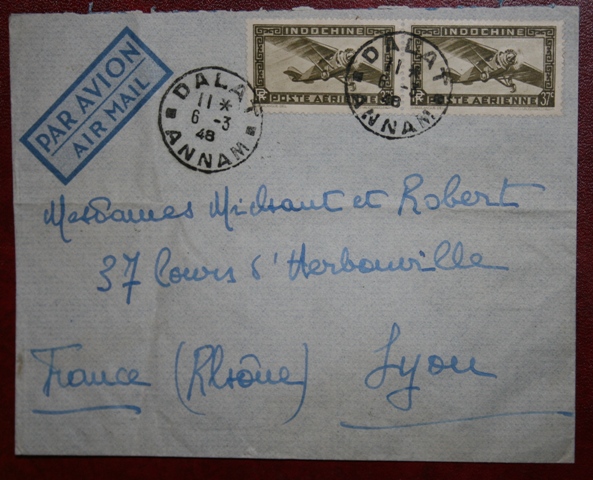 PAR AVION
AIR MAIL
INDOCHINE
POSTE AERIENNE
INDOCHINE
RF POSTE AÉRIENNE 37c
DALAT
11 *
6 -3
48
ANNAM
DALAT
11 *
48
ANNAM
Mesdames Midsant et Robert
37 Cours d'Herbouville
France (Rhône) Lyon